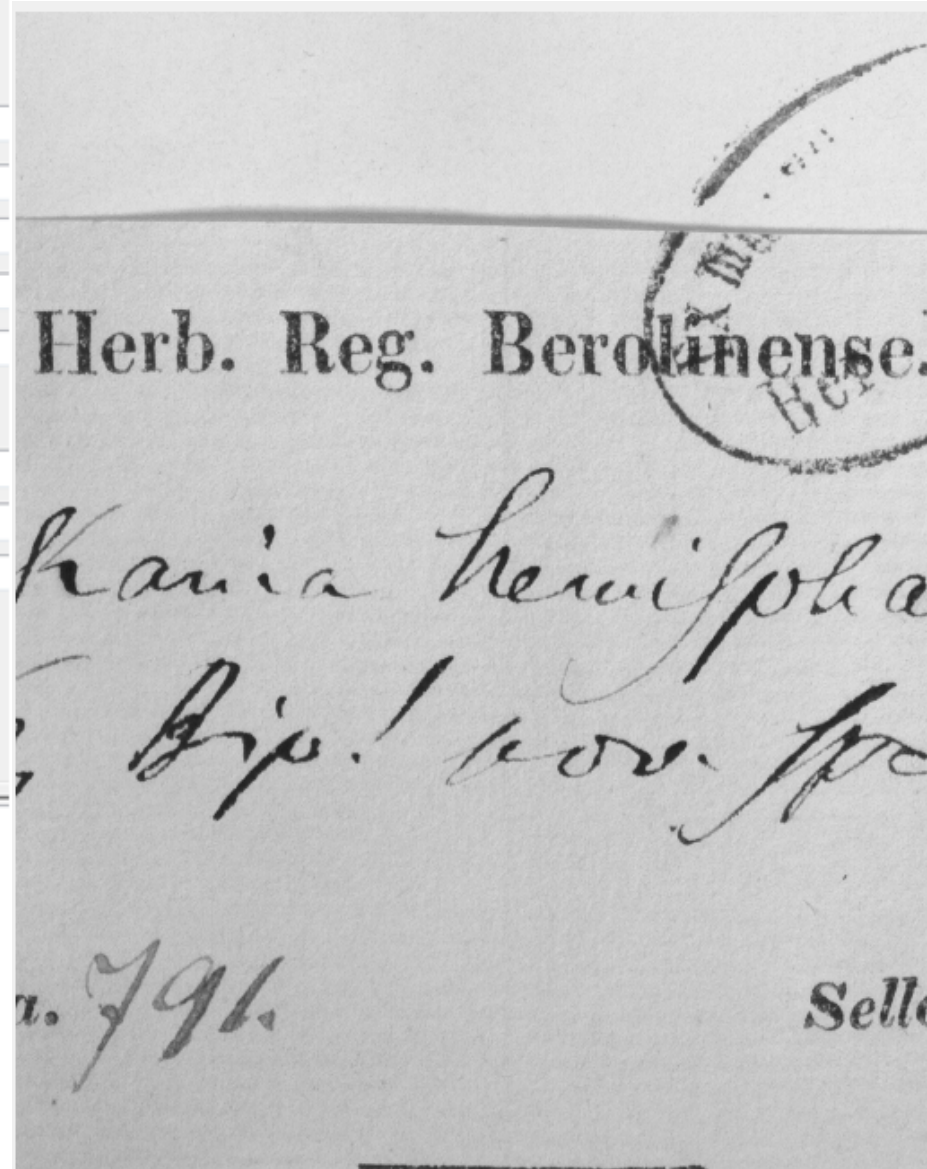 Ex Mus.
Ber
Herb. Reg. Berolinense.
kania hemispha
Bip! nov. spe
a. 791.
Sello